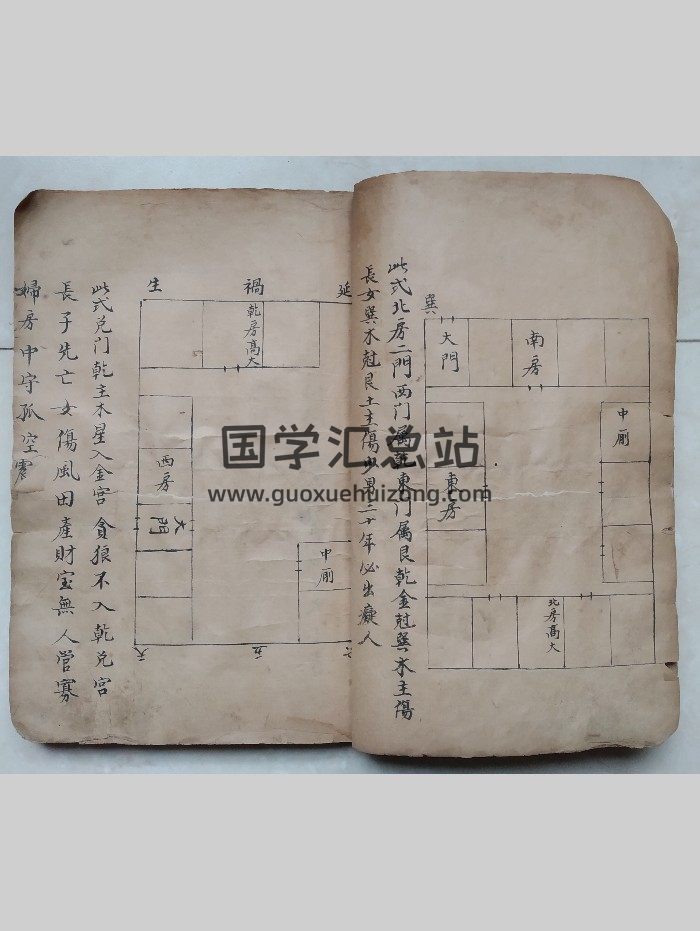 巽
大門
南房
中厠
東房
北房高大
此式北房二門西门属乾東门属艮乾金尅巽木主傷
長女巽木尅艮土主傷少男二十年必出癡人
延
禍
生
乾房高大
西房
大門
中厠
五
天
此式兑门乾主木星入金宫貪狼不入乾兑宫
長子先亡女傷風田產財宝無人管寡
婦房中守孤空
国学汇总站
www.guoxuehuizong.com